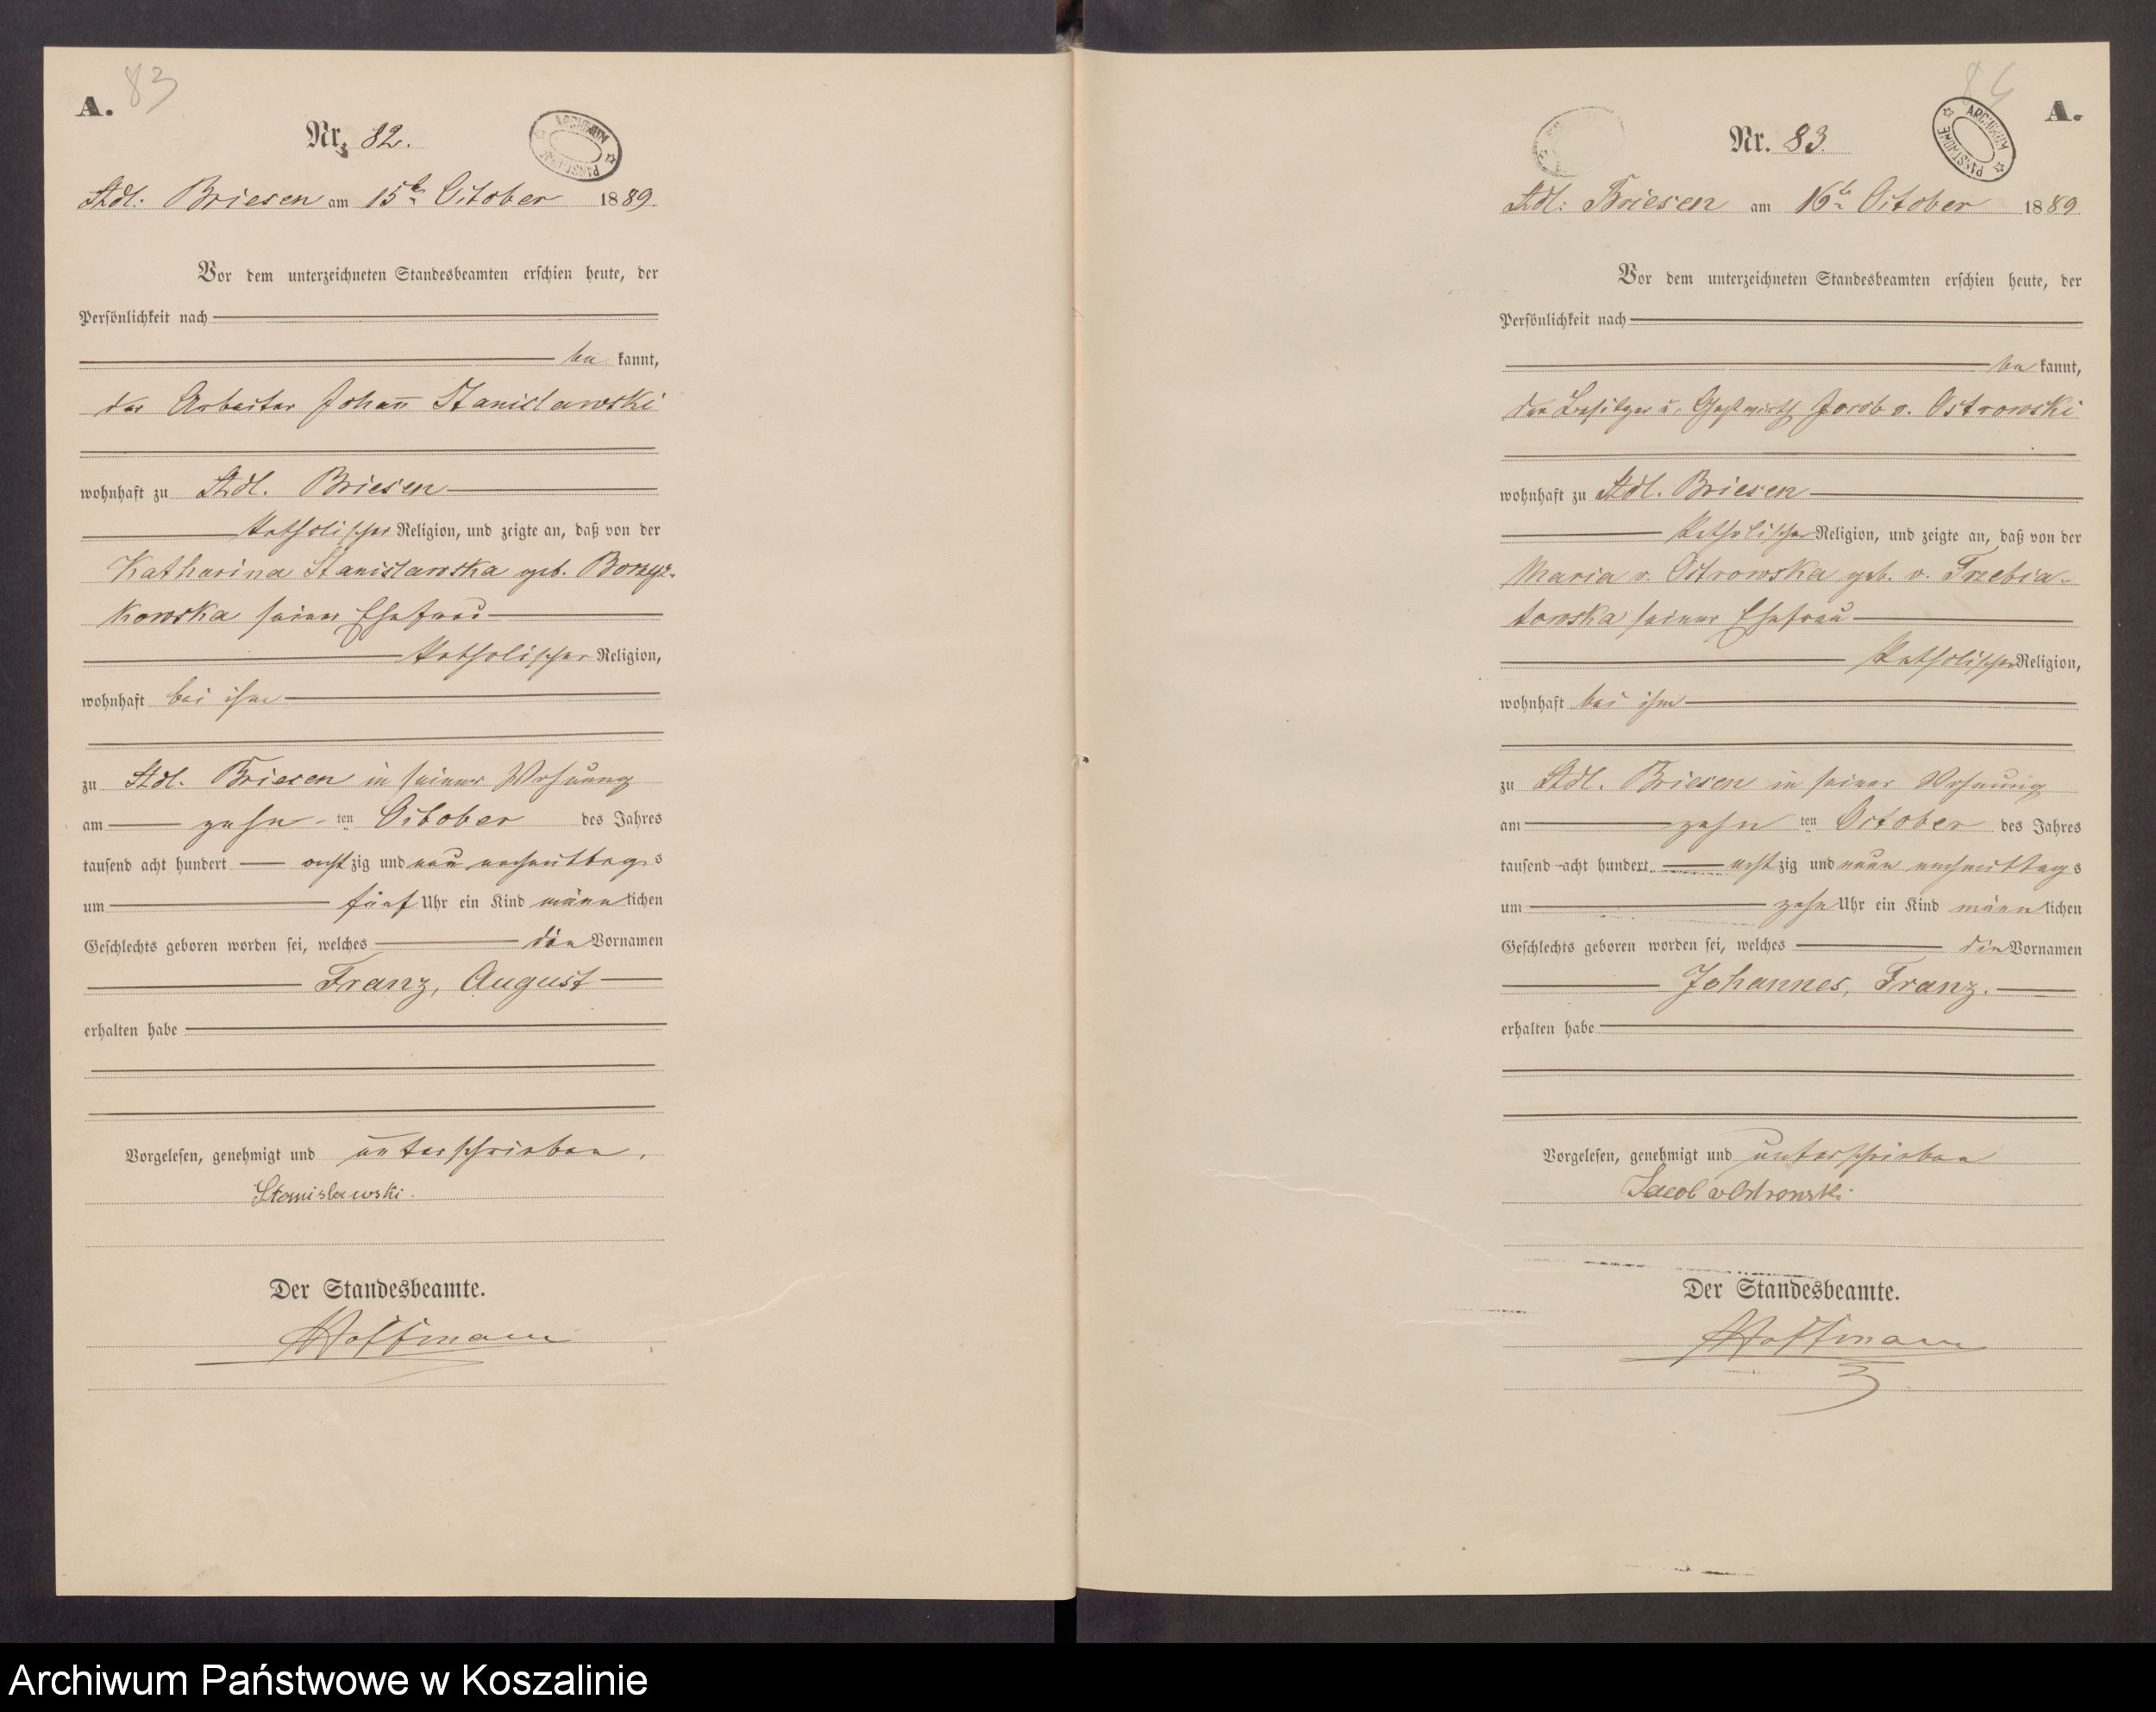 A.
83
Nr. 82.
ARCHIWUM PAŃSTWOWE
Adl. Briesen am 15ten October 1889.
Vor dem unterzeichneten Standesbeamten erschien heute, der
Persönlichkeit nach
be kannt,
der Arbeiter Johan̄ Stanislawski
wohnhaft zu Adl. Briesen
katholischer Religion, und zeigte an, daß von der
Katharina Stanislawska geb.
kowska seiner Ehefrau
katholischer Religion,
wohnhaft bei ihm
zu Adl. Briesen in seiner Wohnung
am zehn ten October des Jahres
tausend acht hundert acht zig und neun nachmittags
um fünf Uhr ein Kind männ lichen
Geschlechts geboren worden sei, welches die Vornamen
Franz, August
erhalten habe
Vorgelesen, genehmigt und unterschrieben.
Stanislawski.
Der Standesbeamte.
Hoffmann
84
A.
Nr. 83.
ARCHIWUM PAŃSTWOWE
Adl: Briesen am 16ten October 1889
Vor dem unterzeichneten Standesbeamten erschien heute, der
Persönlichkeit nach
be kannt,
der Besitzer u. Gastwirth Jacob v. Ostrowski
wohnhaft zu Adl. Briesen
katholischer Religion, und zeigte an, daß von der
Maria v. Ostrowska geb. v. Trzebia-
towska seiner Ehefrau
katholischer Religion,
wohnhaft bei ihm
zu Adl. Briesen in seiner Wohnung
am zehn ten October des Jahres
tausend acht hundert acht zig und neun nachmittags
um zehn Uhr ein Kind männ lichen
Geschlechts geboren worden sei, welches die Vornamen
Johannes, Franz.
erhalten habe
Vorgelesen, genehmigt und unterschrieben
Jacob v Ostrowski
Der Standesbeamte.
Hoffmann
Archiwum Państwowe w Koszalinie